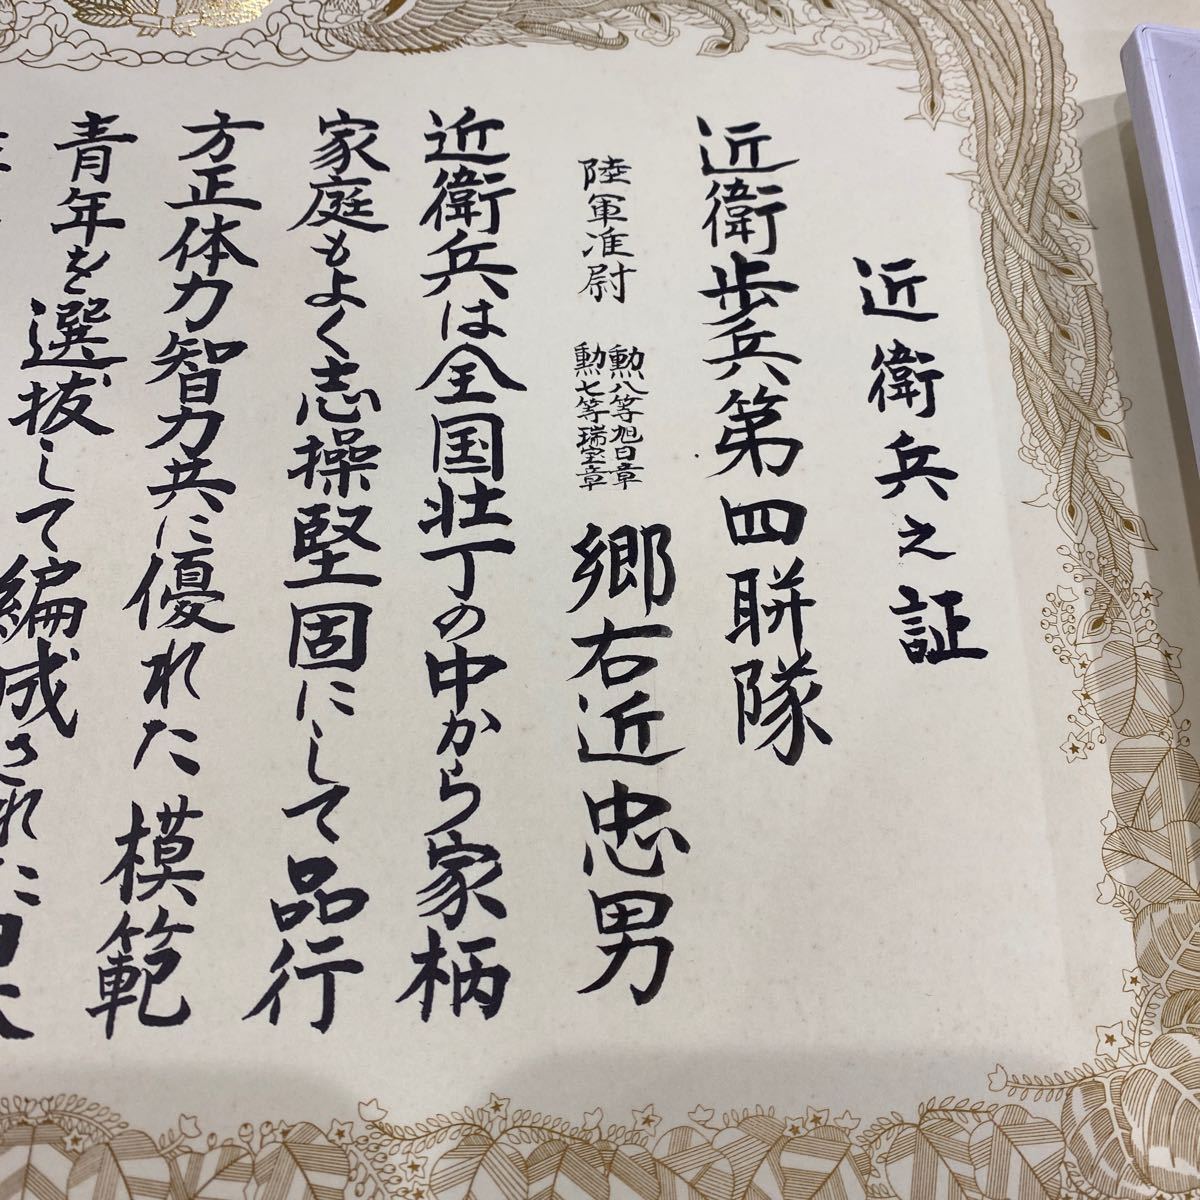 近衛兵之証
近衛歩兵第四聯隊
陸軍准尉 勲八等旭日章 勲七等瑞宝章 郷右近忠男
近衛兵は全国壮丁の中から家柄
家庭もよく志操堅固にして品行
方正体力智力共に優れた模範
青年を選抜して編成された